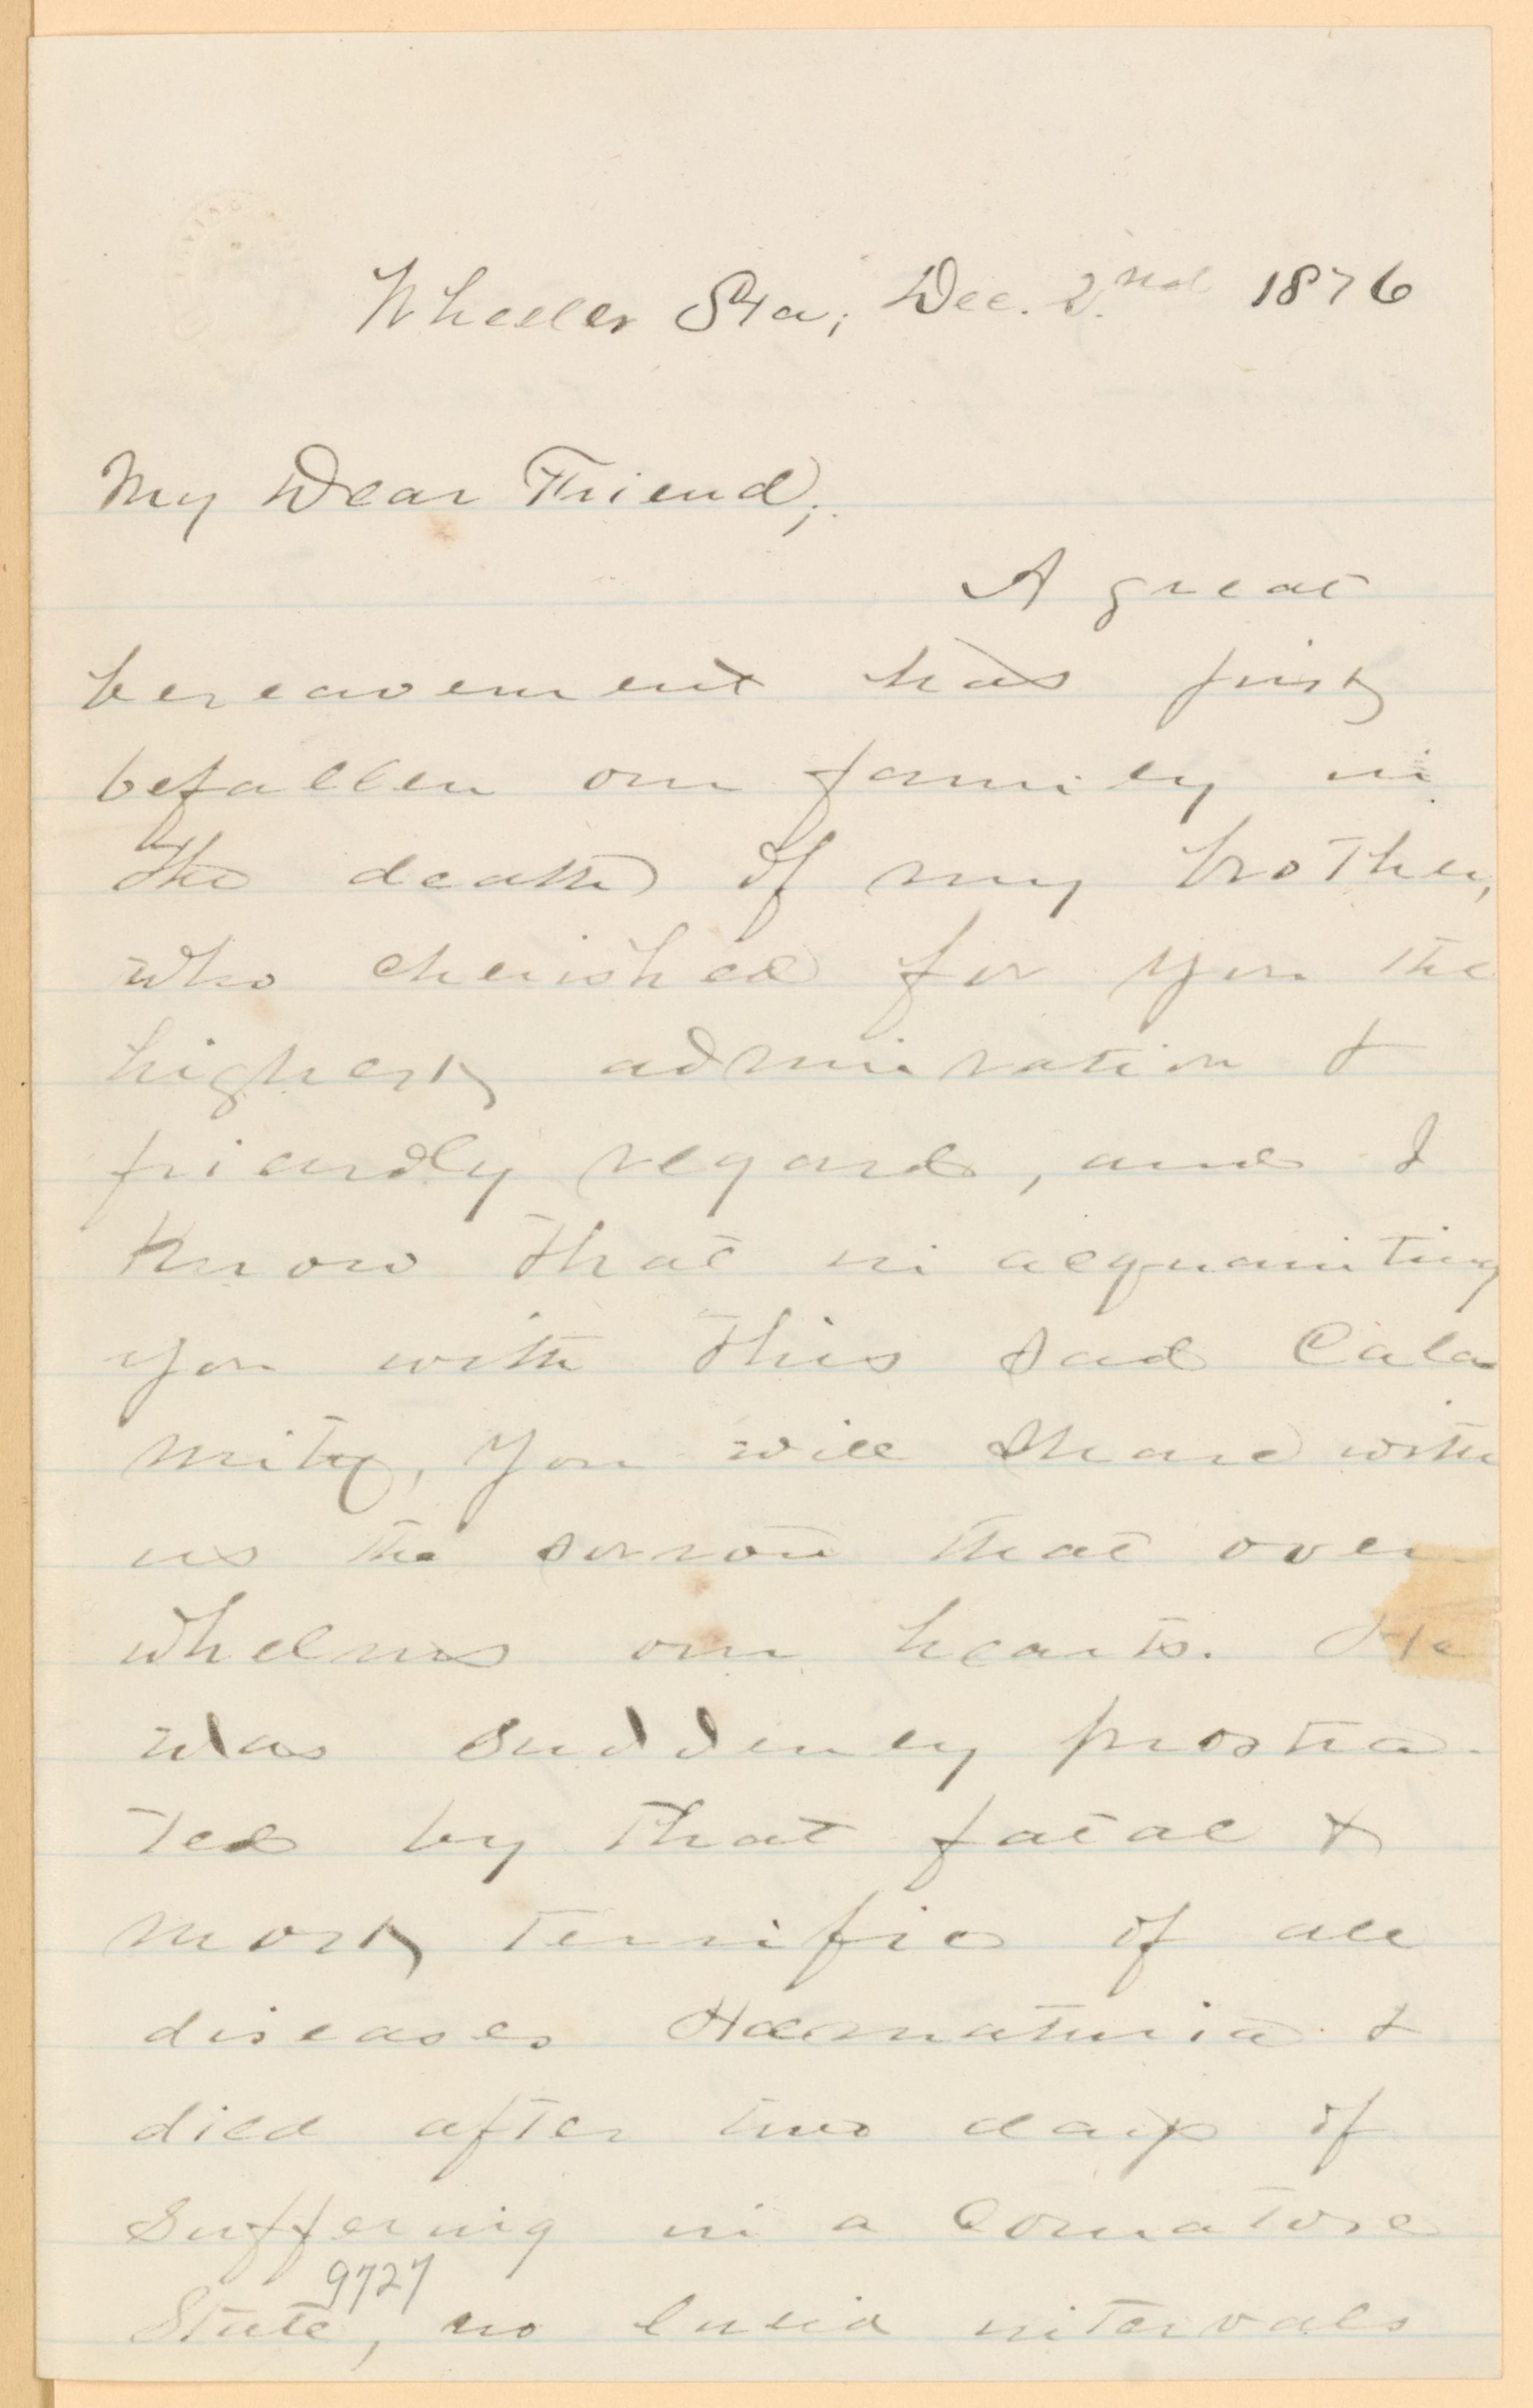 Wheeler Sta; Dec. 2nd 1876
My Dear Friend,
A great
bereavement has just
befallen our family in
the death of my brother,
who cherished for you the
highest admiration &
friendly regard, and I
know that in acquainting
you with this sad Cala
mity, you will share with
us the sorrow that over
whelms our hearts. He
was suddenly prostra-
ted by that fatal &
most terrific of all
diseases Haematuria &
died after two days of
suffering in a Comatose
State, no lucid intervals
9727